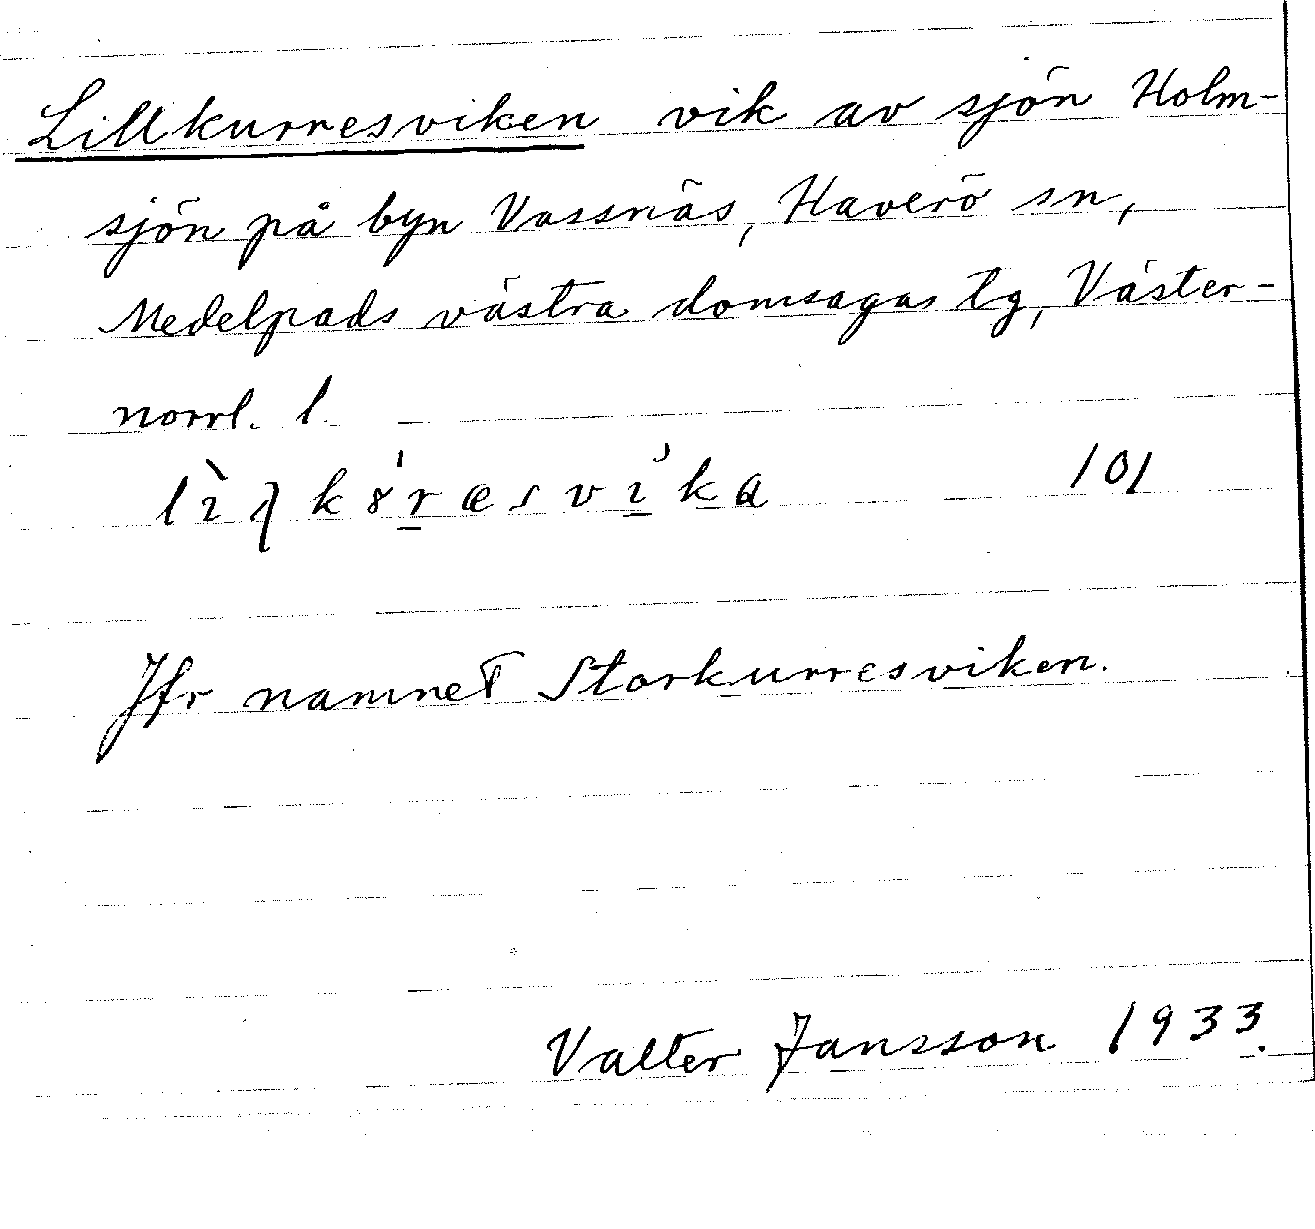 Lillkurresviken vik av sjön Holm-
sjön på byn Vassnäs, Haverö sn,
Medelpads västra domsagas tg, Väster-
norrl. l.
101
Jfr namnet Storkurresviken.
Valter Jansson 1933.